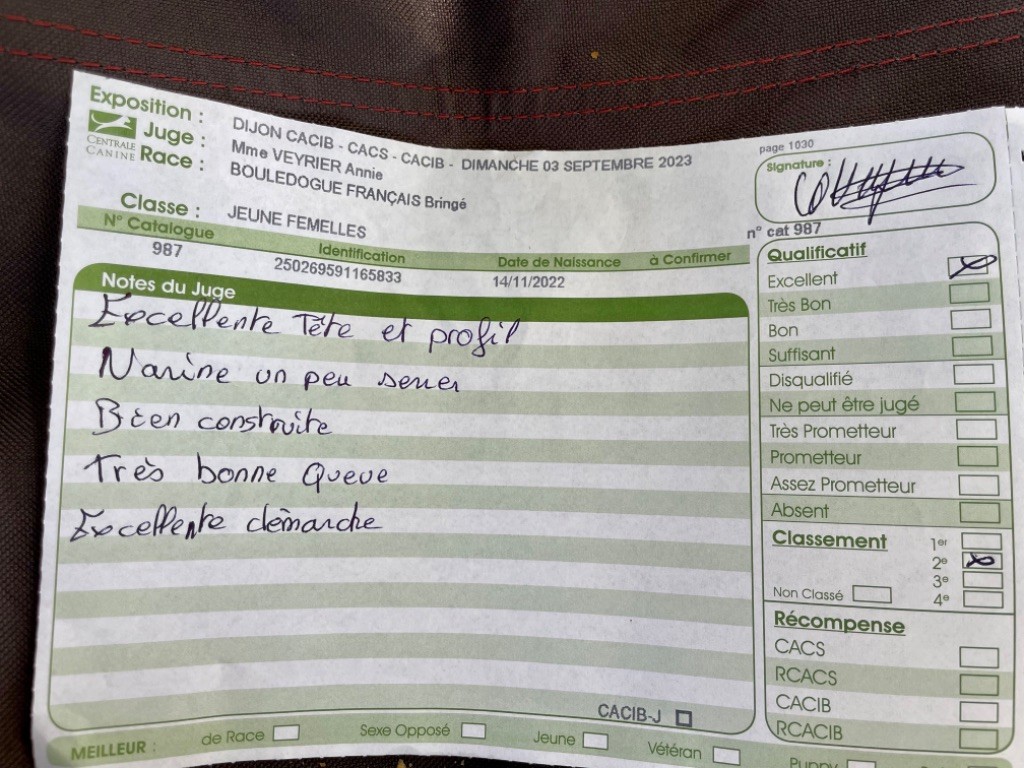 Exposition : DIJON CACIB - CACS - CACIB - DIMANCHE 03 SEPTEMBRE 2023
CENTRALE CANINE
Juge : Mme VEYRIER Annie
Race : BOULEDOGUE FRANÇAIS Bringé
Classe : JEUNE FEMELLES
page 1030
Signature :
n° cat 987
N° Catalogue Identification Date de Naissance à Confirmer
987 250269591165833 14/11/2022
Notes du Juge
Excellente Tête et profil
Narine un peu serrer
Bien construite
Très bonne Queue
Excellente démarche
CACIB-J
MEILLEUR : de Race Sexe Opposé Jeune Vétéran Puppy
Qualificatif
Excellent
Très Bon
Bon
Suffisant
Disqualifié
Ne peut être jugé
Très Prometteur
Prometteur
Assez Prometteur
Absent
Classement
1er
2e
3e
Non Classé 4e
Récompense
CACS
RCACS
CACIB
RCACIB